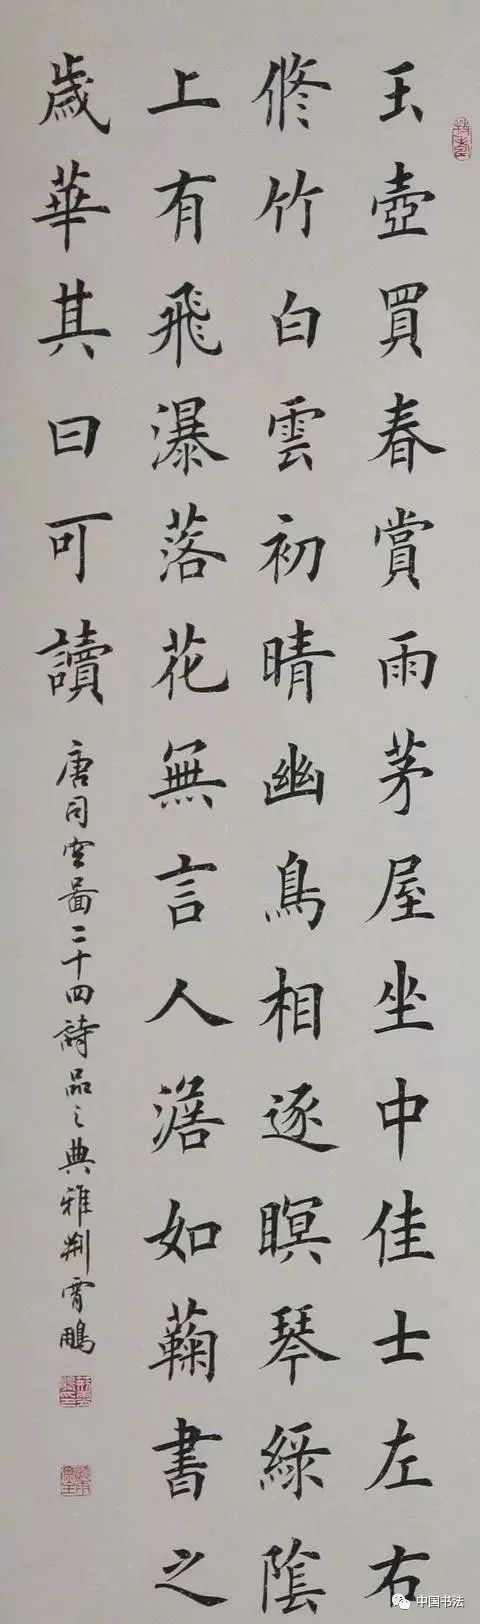 玉壺買春賞雨茅屋坐中佳士左右
修竹白雲初晴幽鳥相逐瞑琴綠陰
上有飛瀑落花無言人澹如蘜書之
歲華其曰可讀
唐司空圖二十四詩品之典雅荆霄鵬
中国书法